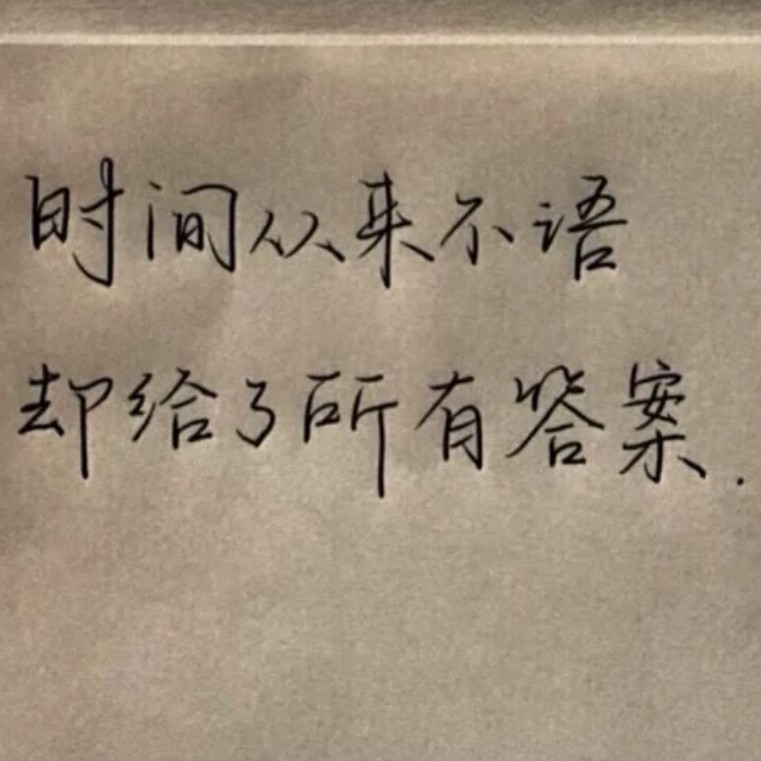 时间从来不语
却给了所有答案.